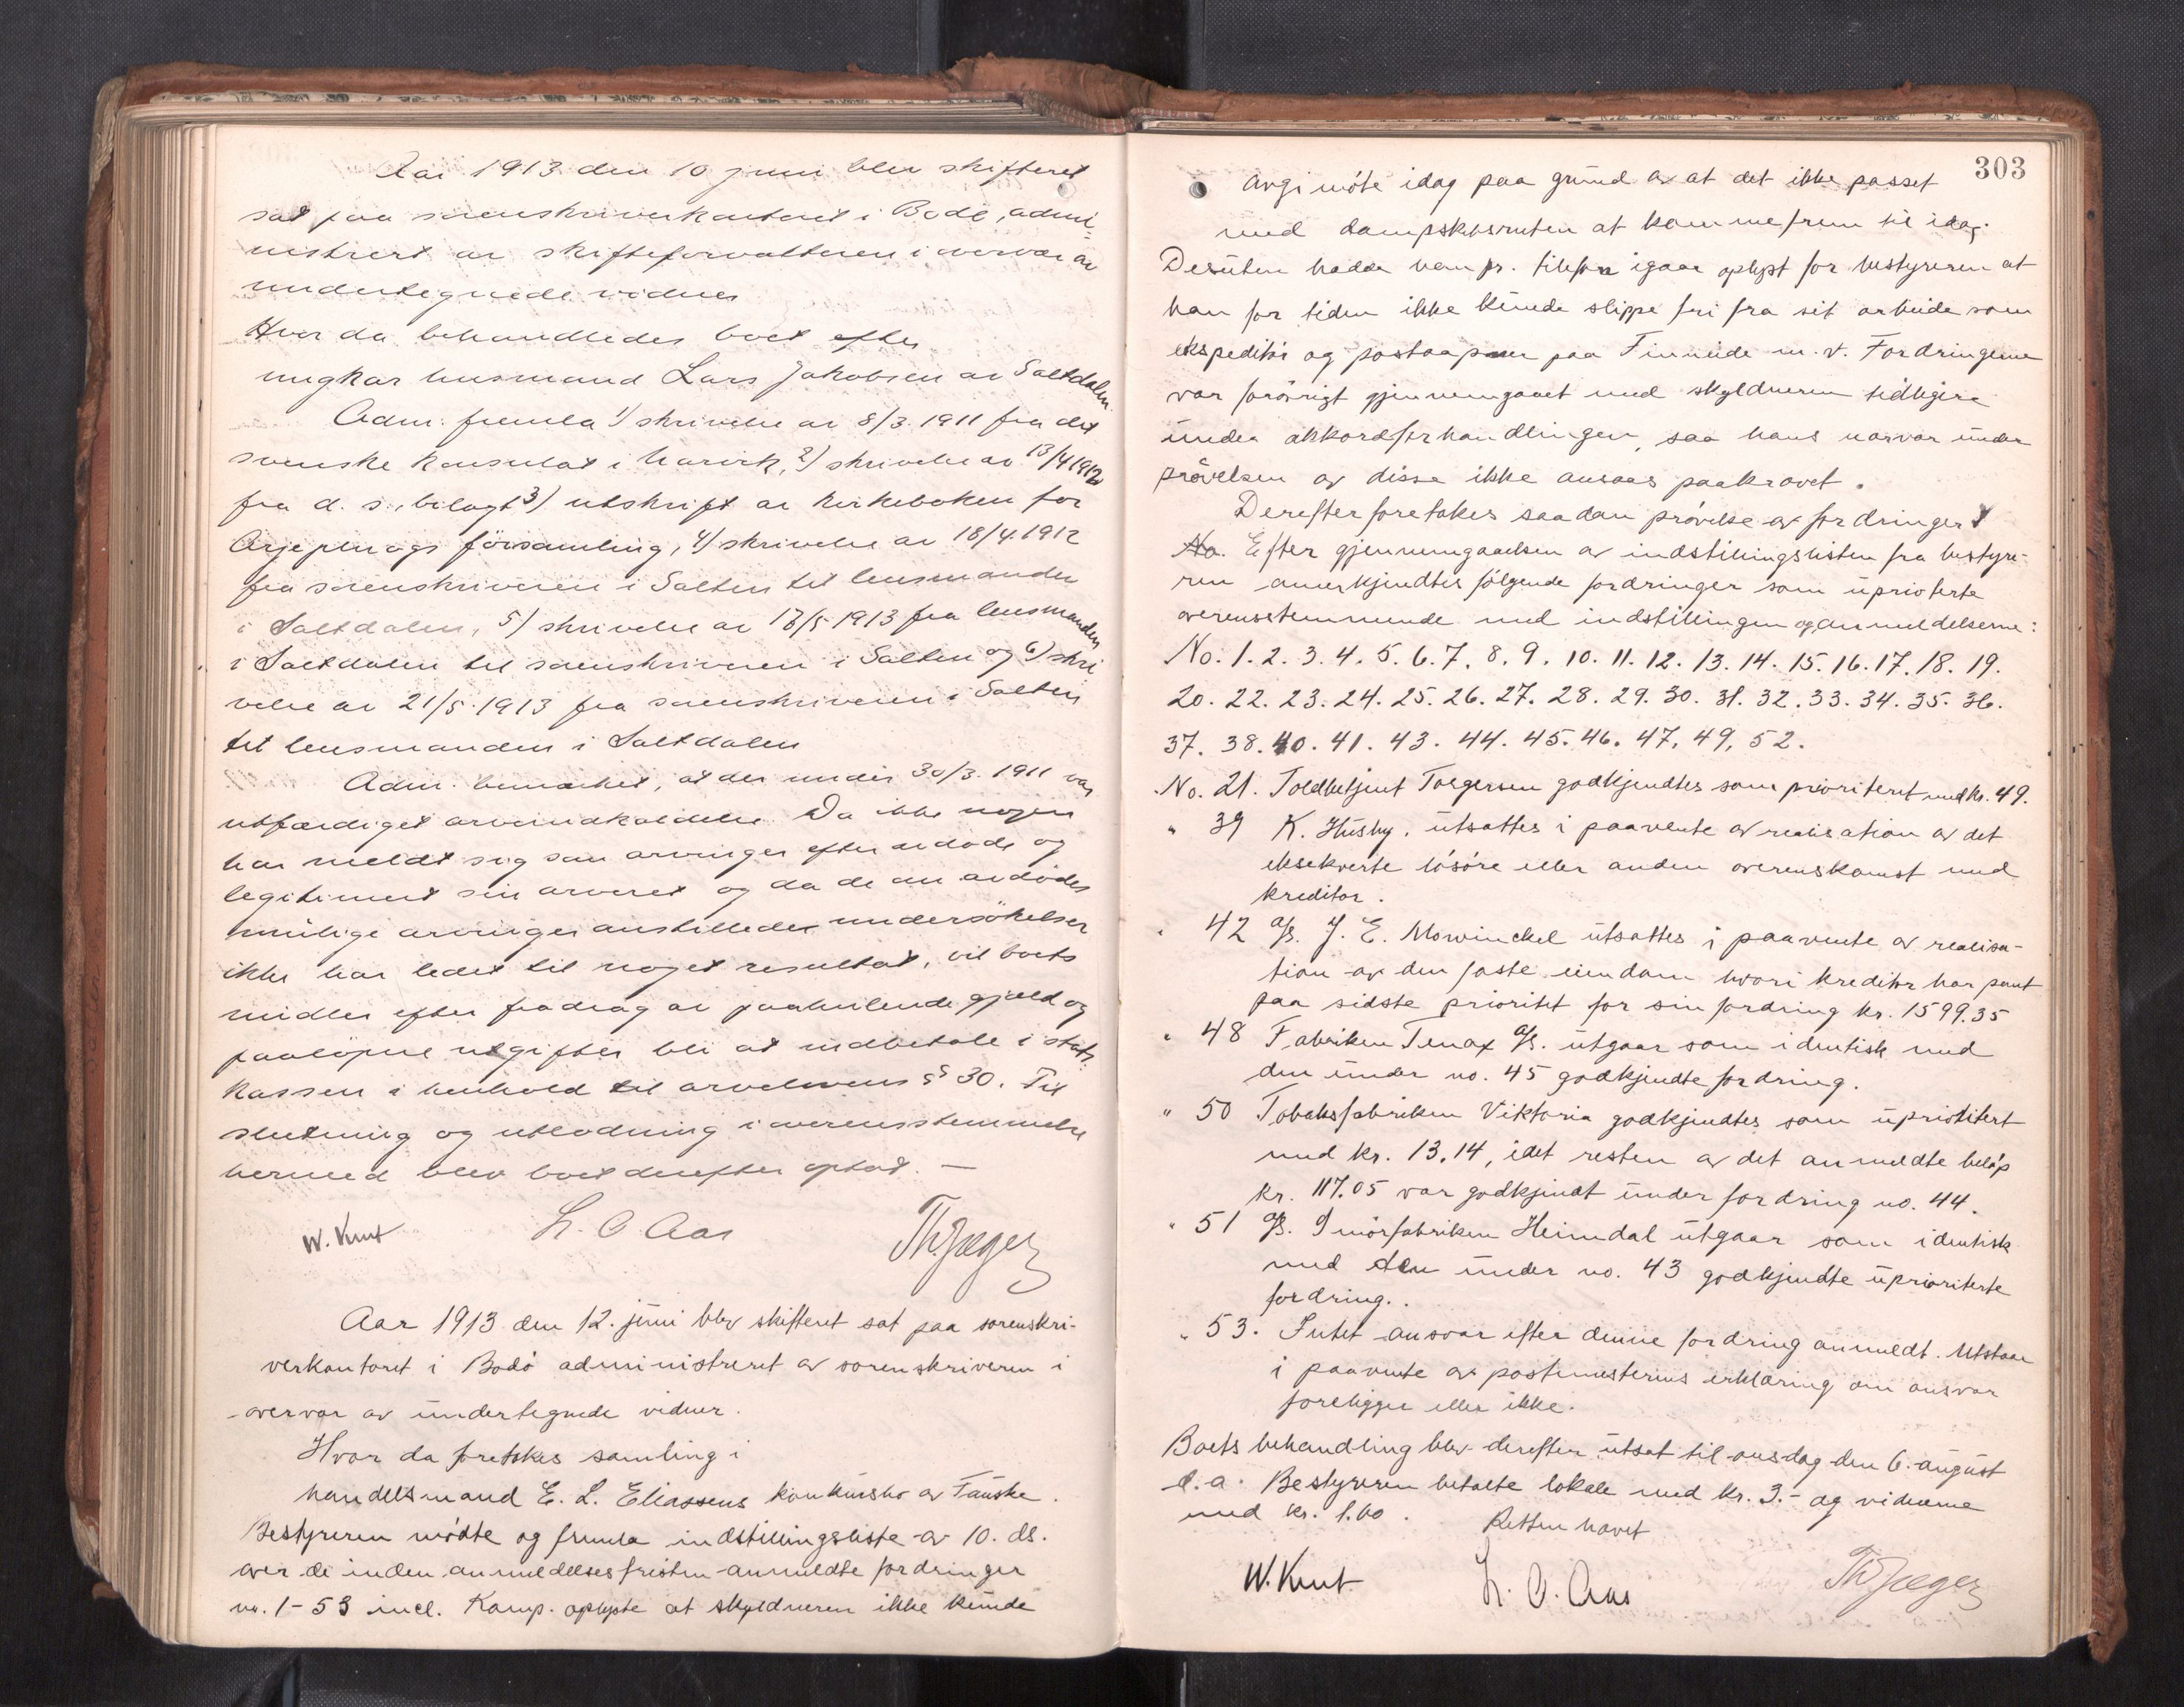 Aar 1913 den 10 juni blev skifteret
sat paa sorenskriverkontoret i Bodø, admi-
nistrert av skifteforvalteren i overvær av
undertegnede vidner
Hvor da behandledes boet efter
ungkar husmand Lars Jakobsen av Saltdalen
Adm: fremla 1) skrivelse av 8/3. 1911 fra det
svenske konsulat i Narvik, 2) skrivelse av 13/4 1912
fra d. s., bilagt 3) utskrift av kirkeboken for
Arjeplougs församling, 4) skrivelse av 18/4 1912
fra sorenskriveren i Salten til lensmanden
i Saltdalen, 5) skrivelse av 18/5 1913 fra lensmanden
i Saltdalen til sorenskriveren i Salten og 6) skri
velse av 21/5. 1913 fra sorenskriveren i Salten
til lensmanden i Saltdalen
Adm. bemærket, at der under 30/3. 1911 var
utfærdiget arveindkaldelse. Da ikke nogen
har meldt sig som arvinger efter avdøde og
legitimert sin arveret og da de om avdødes
mulige arvinger anstilledes undersökelser
ikke har ledet til noget resultat, vil boets
midler efter fradrag av paahvilende gjæld og
paaløpne utgifter bli at indbetale i stats
kassen i henhold til arvelovens § 30. Til
slutning og utlodning i overensstemmelse
hermed blev boet derefter optat. —
W. Knut L. O. Aas Th Jæger
Aar 1913 den 12. juni blev skifteret sat paa sorenskri-
verkontoret i Bodø administreret av sorenskriveren i
overvær av undertegnede vidner.
Hvor da foretokes samling i
handelsmand E. L. Eliassens konkursbo av Fauske.
Bestyreren mødte og fremla indstillingsliste av 10. ds.
over de inden anmeldelsesfristen anmeldte fordringer
no. 1-53 incl. Komp. oplyste at skyldneren ikke kunde
303
avgi møte idag paa grund av at det ikke passet
med dampskibsruten at komme frem til idag.
Desuten hadde han pr. telefon igaar oplyst for bestyreren at
han for tiden ikke kunde slippe fri fra sit arbeide som
ekspeditør og postaapner paa Finneide m. v. Fordringerne
var forøvrigt gjennemgaaet med skyldneren tidligere
under akkordforhandlingen, saa hans nærvær under
prøvelsen av disse ikke ansaaes paakrævet.
Derefter foretokes saadan prøvelse av fordringer
No. Efter gjennemgaaelsen av indstillingslisten fra bestyre-
ren anerkjendtes følgende fordringer som uprioterte
overensstemmende med indstillingen og anmeldelserne:
No. 1. 2. 3. 4. 5. 6. 7. 8. 9. 10. 11. 12. 13. 14. 15. 16. 17. 18. 19.
20. 22. 23. 24. 25. 26. 27. 28. 29. 30. 31. 32. 33. 34. 35. 36.
37. 38. 40. 41. 43. 44. 45. 46. 47, 49, 52.
No. 21. Toldbetjent Torgersen godkjendtes som prioriteret med kr. 49.
" 39 K. Husby. utsattes i paavente av realisation av det
eksekverte løsøre eller anden overenskomst med
kreditor.
" 42 A/S. J. E. Mowinckel utsattes i paavente av realisa-
tion av den faste eiendom hvori kreditor har pant
paa sidste prioritet for sin fordring kr. 1599.35
" 48 Fabriken Tenax A/S. utgaar som identisk med
den under no. 45 godkjendte fordring.
" 50 Tobaksfabriken Viktoria godkjendtes som uprioitert
med kr. 13.14, idet resten av det anmeldte beløp
kr. 117.05 var godkjendt under fordring no. 44.
" 51 A/S. Smørfabriken Heimdal utgaar som identisk
med den under no. 43 godkjendte uprioriterte
fordring.
" 53. Intet ansvar efter denne fordring anmeldt. Utstaar
i paavente av postmesterens erklæring om ansvar
foreligger eller ikke.
Boets behandling blev derefter utsat til onsdag den 6. august
d. a. Bestyreren betalte lokale med kr. 3.- og vidnerne
med kr. 1.60. Retten hævet
W. Knut L. O. Aas Th Jæger